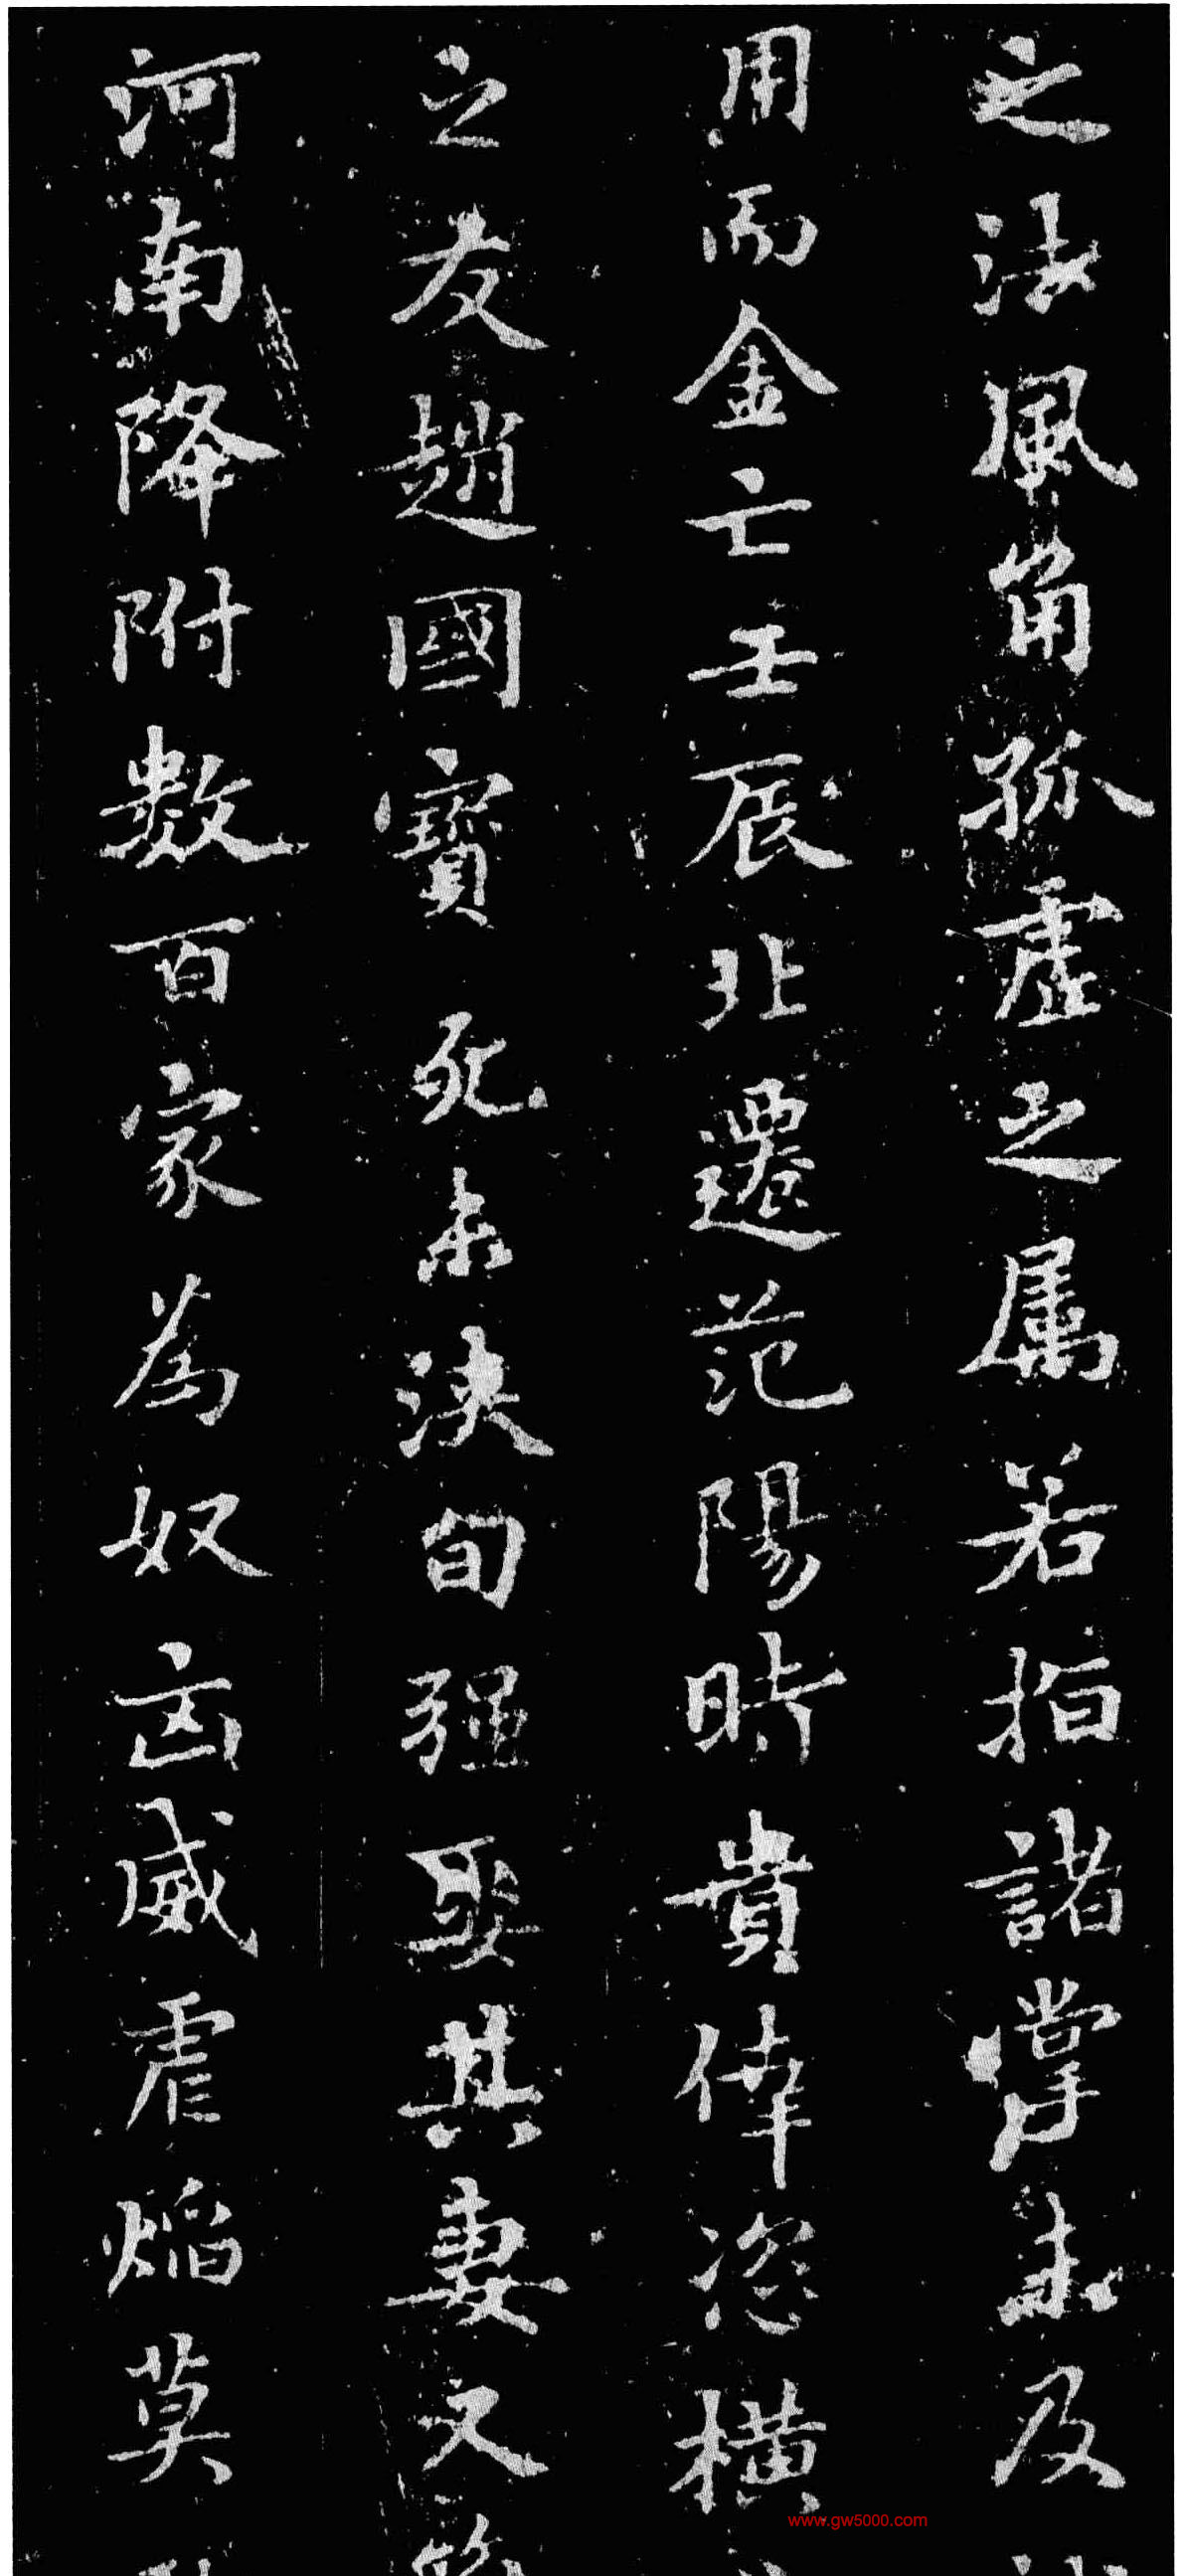 之法風角孤虛之属若指諸掌未及
用而金亡壬辰北遷范陽時貴倖恣橫
之友趙國寶死未浹旬强娶其妻又
河南降附數百家為奴亡威虐焰莫
www.gw5000.com